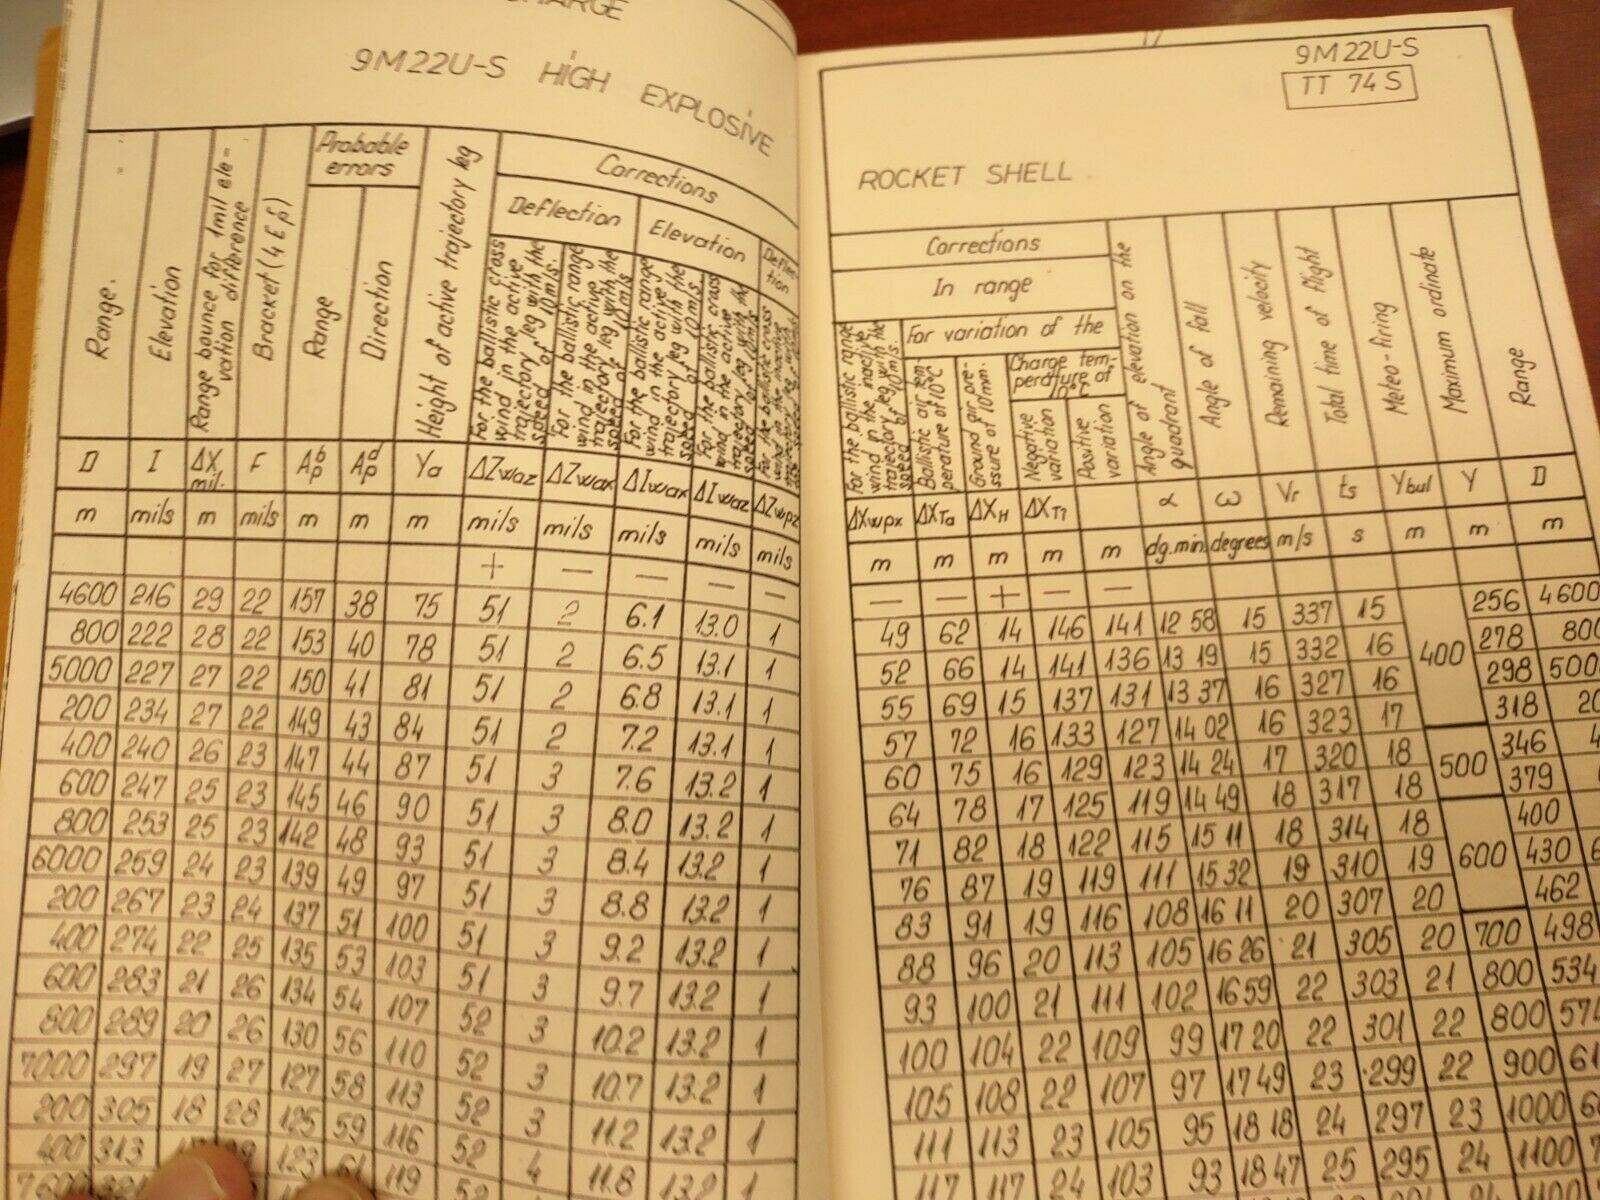 CHARGE
9M22U-S HIGH EXPLOSIVE
Range.
Elevation
Range bounce for 1mil ele-
vation difference
Bracket (4 Ep)
Probable
errors
Range
Direction
Height of active trajectory leg
Corrections
Deflection
Elevation
Deflec-
tion
For the ballistic cross
wind in the active
trajectory leg with the
speed of 10m/s.
For the ballistic range
wind in the active
trajectory leg with the
speed of 10m/s.
For the ballistic range
wind in the active
trajectory leg with the
speed of 10m/s.
For the ballistic cross
wind in the active
trajectory leg with the
speed of 10m/s.
For the ballistic cross
wind in the inactive
D I ΔX mil. F A b p A d p Ya ΔZwaz ΔZwax ΔIwax ΔIwaz ΔZwpz
m mils m mils m m m mils mils mils mils mils
+ — — — —
4600 216 29 22 157 38 75 51 2 6.1 13.0 1
800 222 28 22 153 40 78 51 2 6.5 13.1 1
5000 227 27 22 150 41 81 51 2 6.8 13.1 1
200 234 27 22 149 43 84 51 2 7.2 13.1 1
400 240 26 23 147 44 87 51 3 7.6 13.2 1
600 247 25 23 145 46 90 51 3 8.0 13.2 1
800 253 25 23 142 48 93 51 3 8.4 13.2 1
6000 259 24 23 139 49 97 51 3 8.8 13.2 1
200 267 23 24 137 51 100 51 3 9.2 13.2 1
400 274 22 25 135 53 103 51 3 9.7 13.2 1
600 283 21 26 134 54 107 52 3 10.2 13.2 1
800 289 20 26 130 56 110 52 3 10.7 13.2 1
7000 297 19 27 127 58 113 52 3 11.2 13.2 1
200 305 18 28 125 59 116 52 4 11.8 13.2
400 313 123 61 119 52
9M22U-S
TT 74 S
ROCKET SHELL
Corrections
In range
For the ballistic range
wind in the inactive
trajectory leg with the
speed of 10m/s.
For variation of the
Ballistic air tem-
perature of 10°C
Ground air pre-
ssure of 10mm.
Charge tem-
perature of
10°C
Negative
variation
Positive
variation
Angle of elevation on the
quadrant
Angle of fall
Remaining velocity
Total time of flight
Meteo-firing
Maximum ordinate
Range
ΔXwpx ΔXTa ΔXH ΔXT1 α ω Vr ts Ybul Y D
m m m m m dg.min. degrees m/s s m m m
— — + — —
49 62 14 146 141 12 58 15 337 15 400 256 4600
52 66 14 141 136 13 19 15 332 16 278 800
55 69 15 137 131 13 37 16 327 16 298 500
57 72 16 133 127 14 02 16 323 17 318 20
60 75 16 129 123 14 24 17 320 18 500 346 4
64 78 17 125 119 14 49 18 317 18 379
71 82 18 122 115 15 11 18 314 18 600 400
76 87 19 119 111 15 32 19 310 19 430 6
83 91 19 116 108 16 11 20 307 20 462
88 96 20 113 105 16 26 21 305 20 700 498
93 100 21 111 102 16 59 22 303 21 800 534
100 104 22 109 99 17 20 22 301 22 800 574
105 108 22 107 97 17 49 23 299 22 900 61
111 113 23 105 95 18 18 24 297 23 1000
117 117 24 103 93 18 47 25 295 24 1100